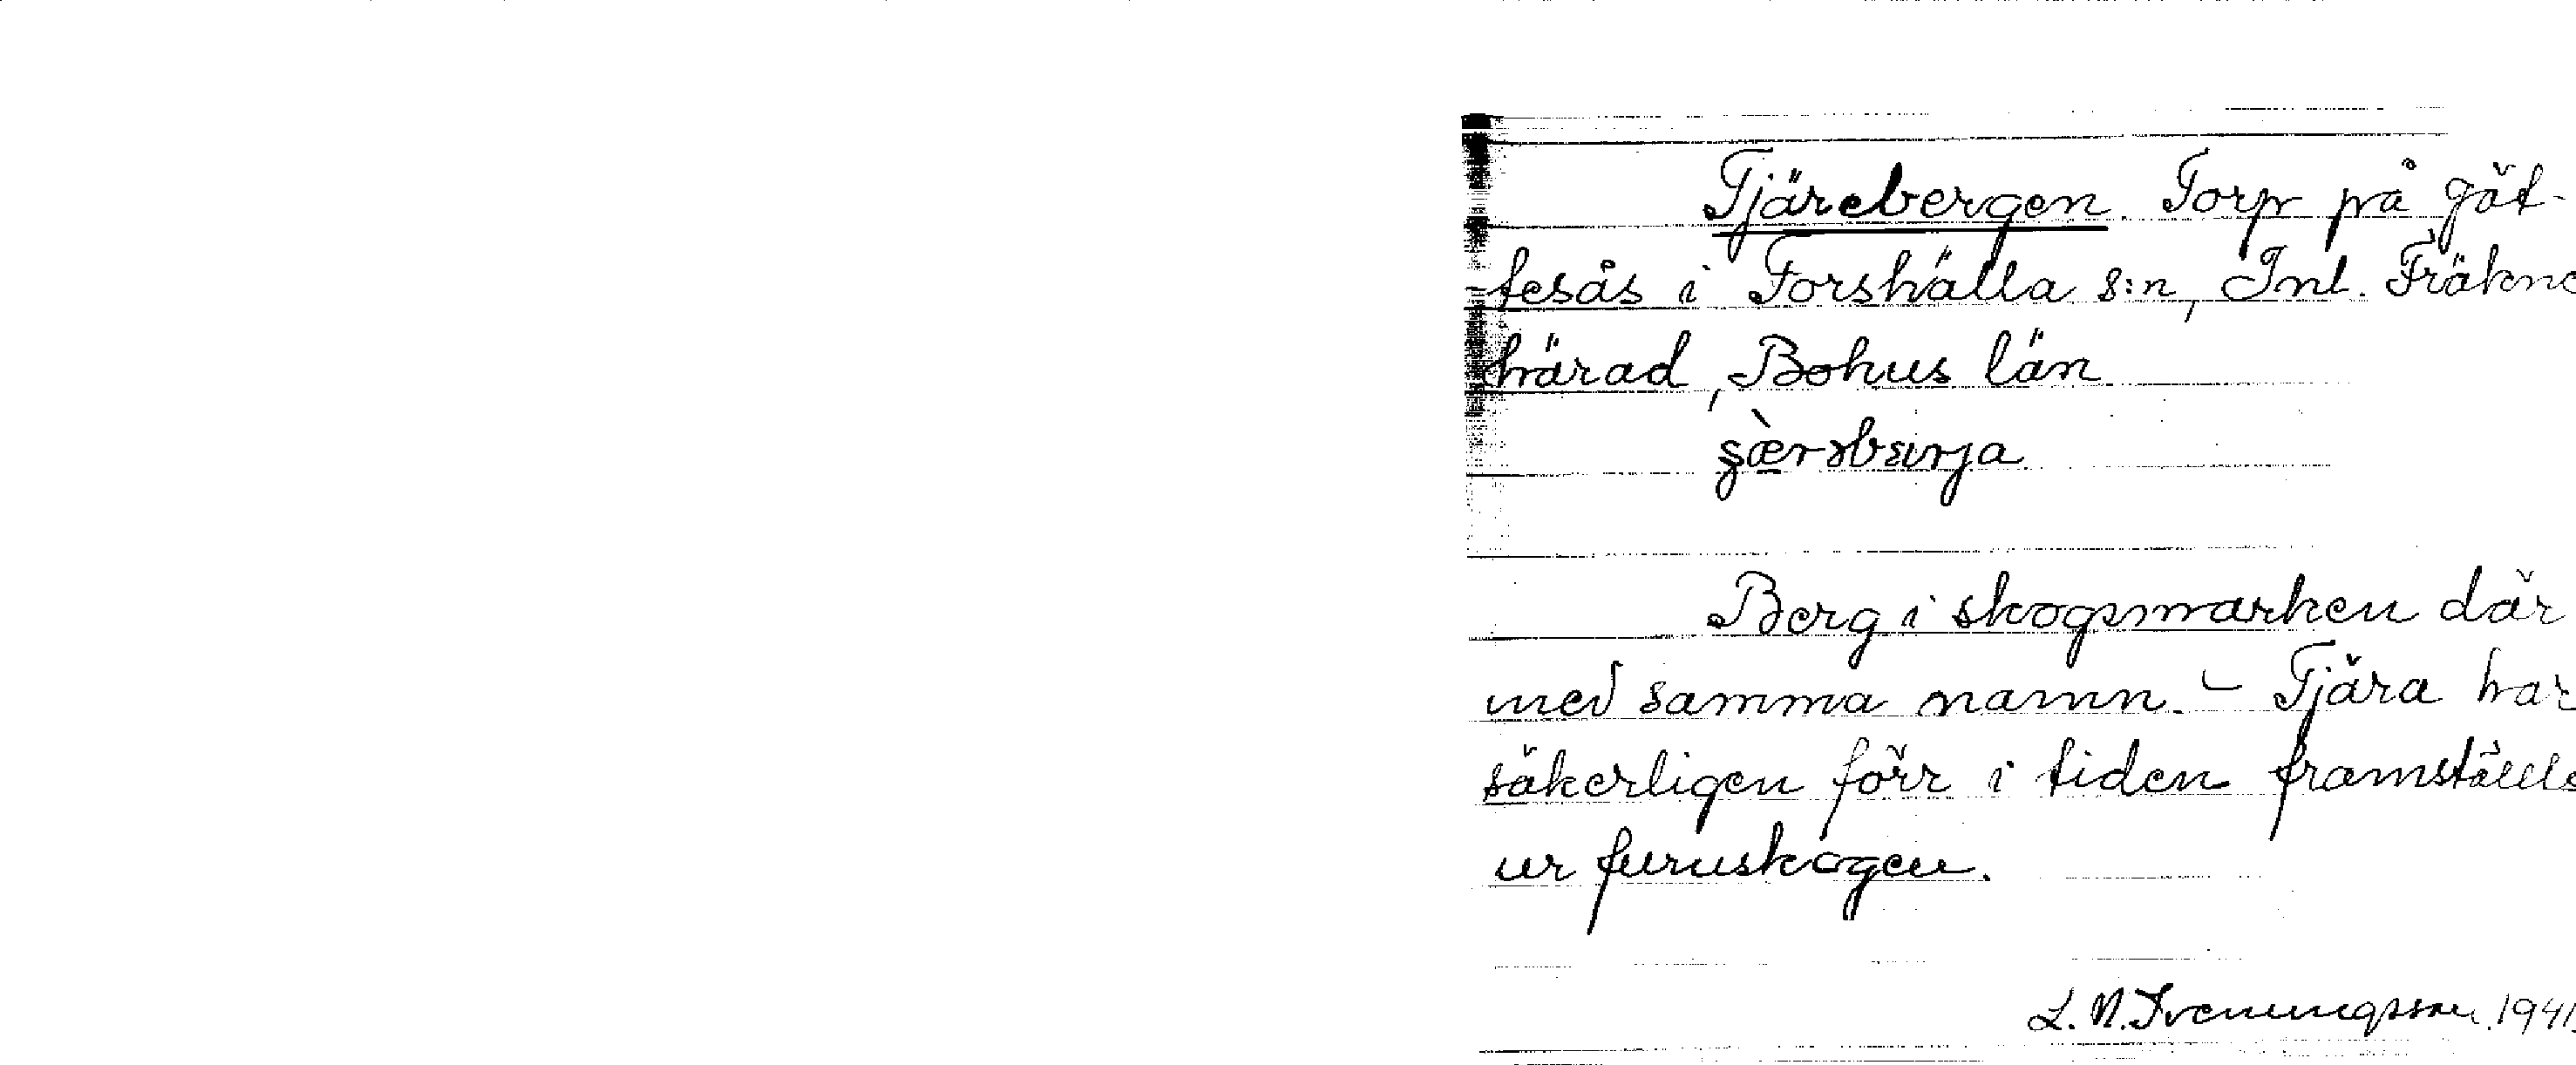 Tjärebergen. Torp på Göt-
tesås i Forshälla s:n, Inl. Fräkne
härad, Bohus län
Berg i skogsmarken där
med samma namn. – Tjära har
säkerligen förr i tiden framställts
ur furuskogen.
L. N. 1941.